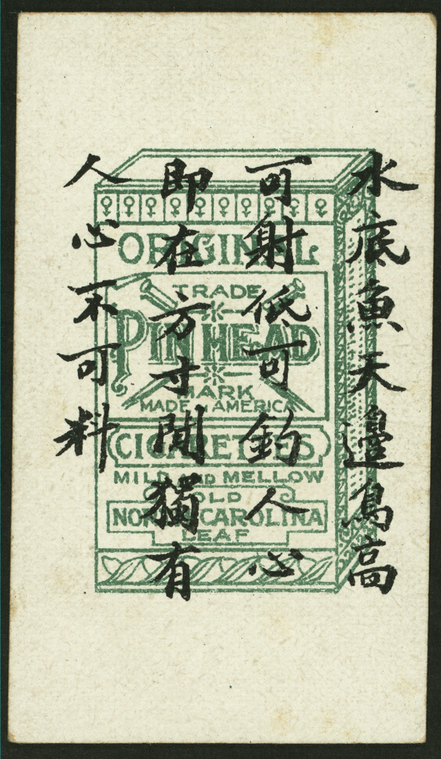 水底魚天邊鳥高
可射低可釣人心
即在方寸間獨有
人心不可料
ORIGINAL
TRADE
PIN HEAD
MARK
MADE IN AMERICA
CIGARETTES
MILD AND MELLOW
OLD
NORTH CAROLINA
LEAF